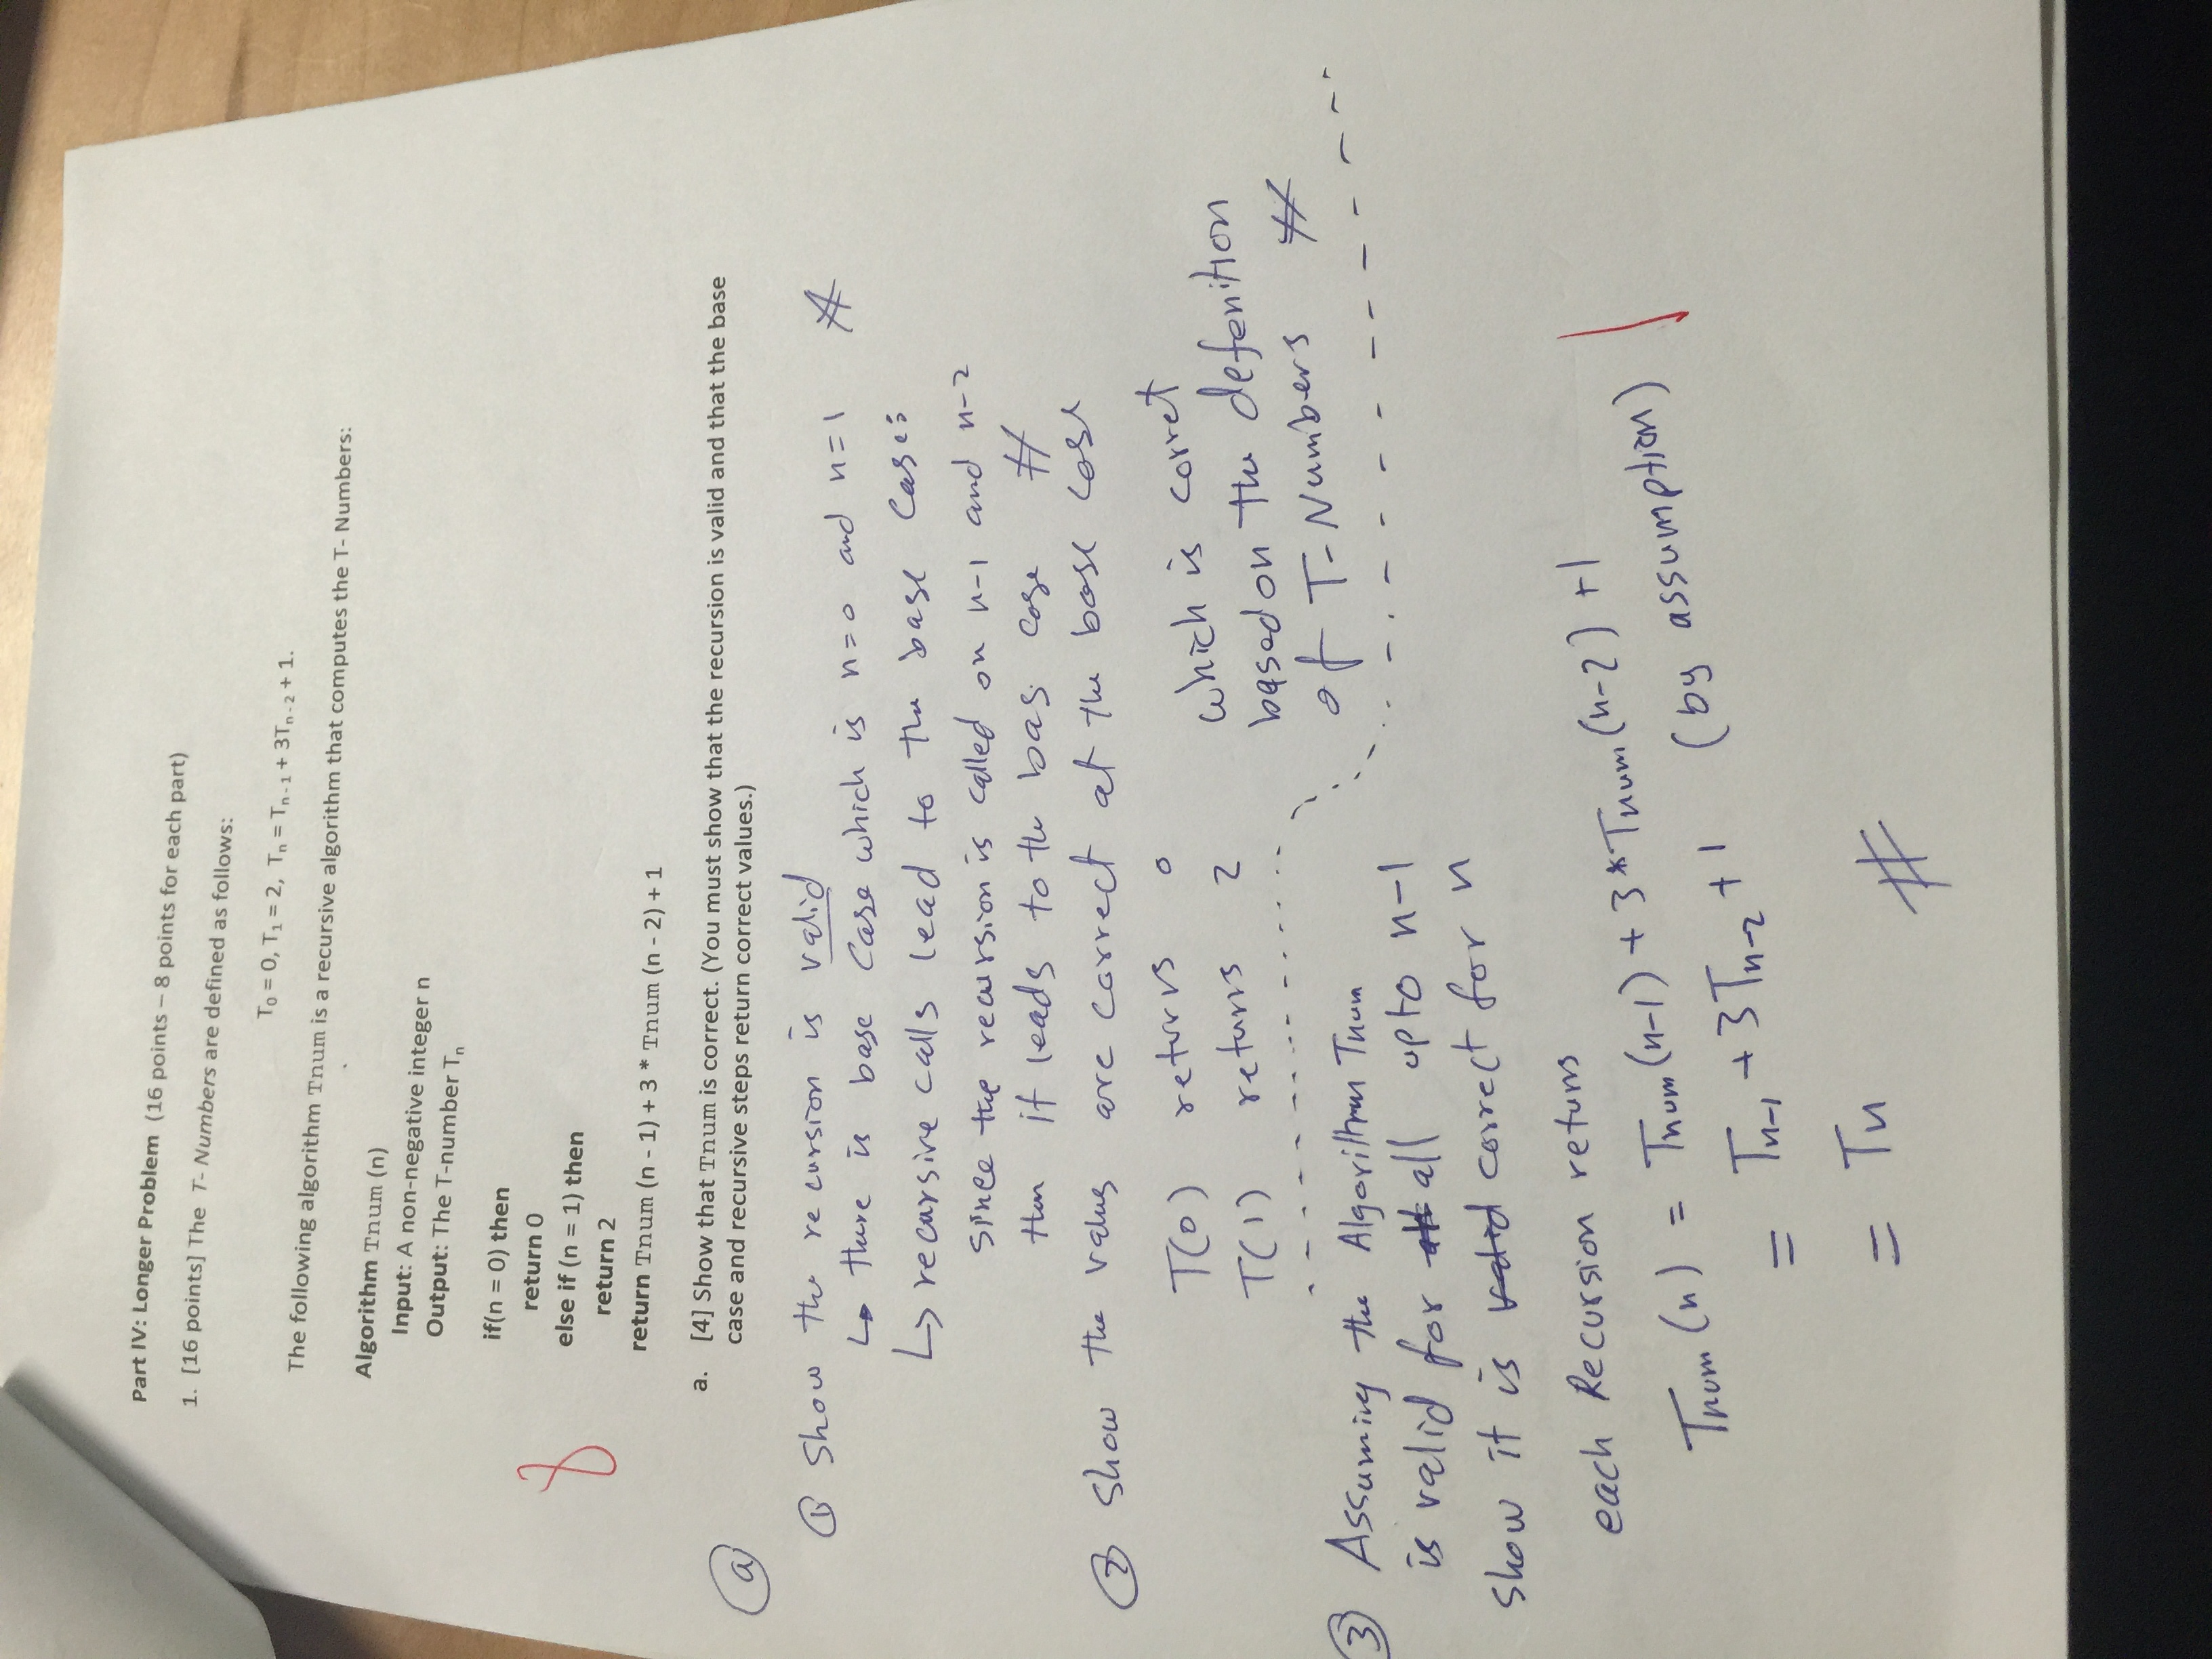 Part IV: Longer Problem (16 points – 8 points for each part)
1. [16 points] The T- Numbers are defined as follows:
T₀ = 0, T₁ = 2, Tₙ = Tₙ₋₁ + 3Tₙ₋₂ + 1.
The following algorithm Tnum is a recursive algorithm that computes the T- Numbers:
Algorithm Tnum (n)
Input: A non-negative integer n
Output: The T-number Tₙ
if(n = 0) then
return 0
else if (n = 1) then
return 2
return Tnum (n - 1) + 3 * Tnum (n - 2) + 1
8
a. [4] Show that Tnum is correct. (You must show that the recursion is valid and that the base
case and recursive steps return correct values.)
a
① Show the recursion is valid
↳ there is base Case which is n=0 and n=1 #
↳ recursive calls lead to the base Case:
Since the recursion is called on n-1 and n-2
then it leads to the bas case #
② Show the values are correct at the base case
T(0) returns 0
T(1) returns 2
which is corret
based on the defenition
of T-Numbers #
③ Assuming the Algorithm Tnum
is valid for all upto n-1
Show it is valid correct for n
each Recursion returns
Tnum (n) = Tnum (n-1) + 3*Tnum (n-2) +1
= Tₙ₋₁ + 3Tₙ₋₂ + 1 (by assumption)
= Tn #